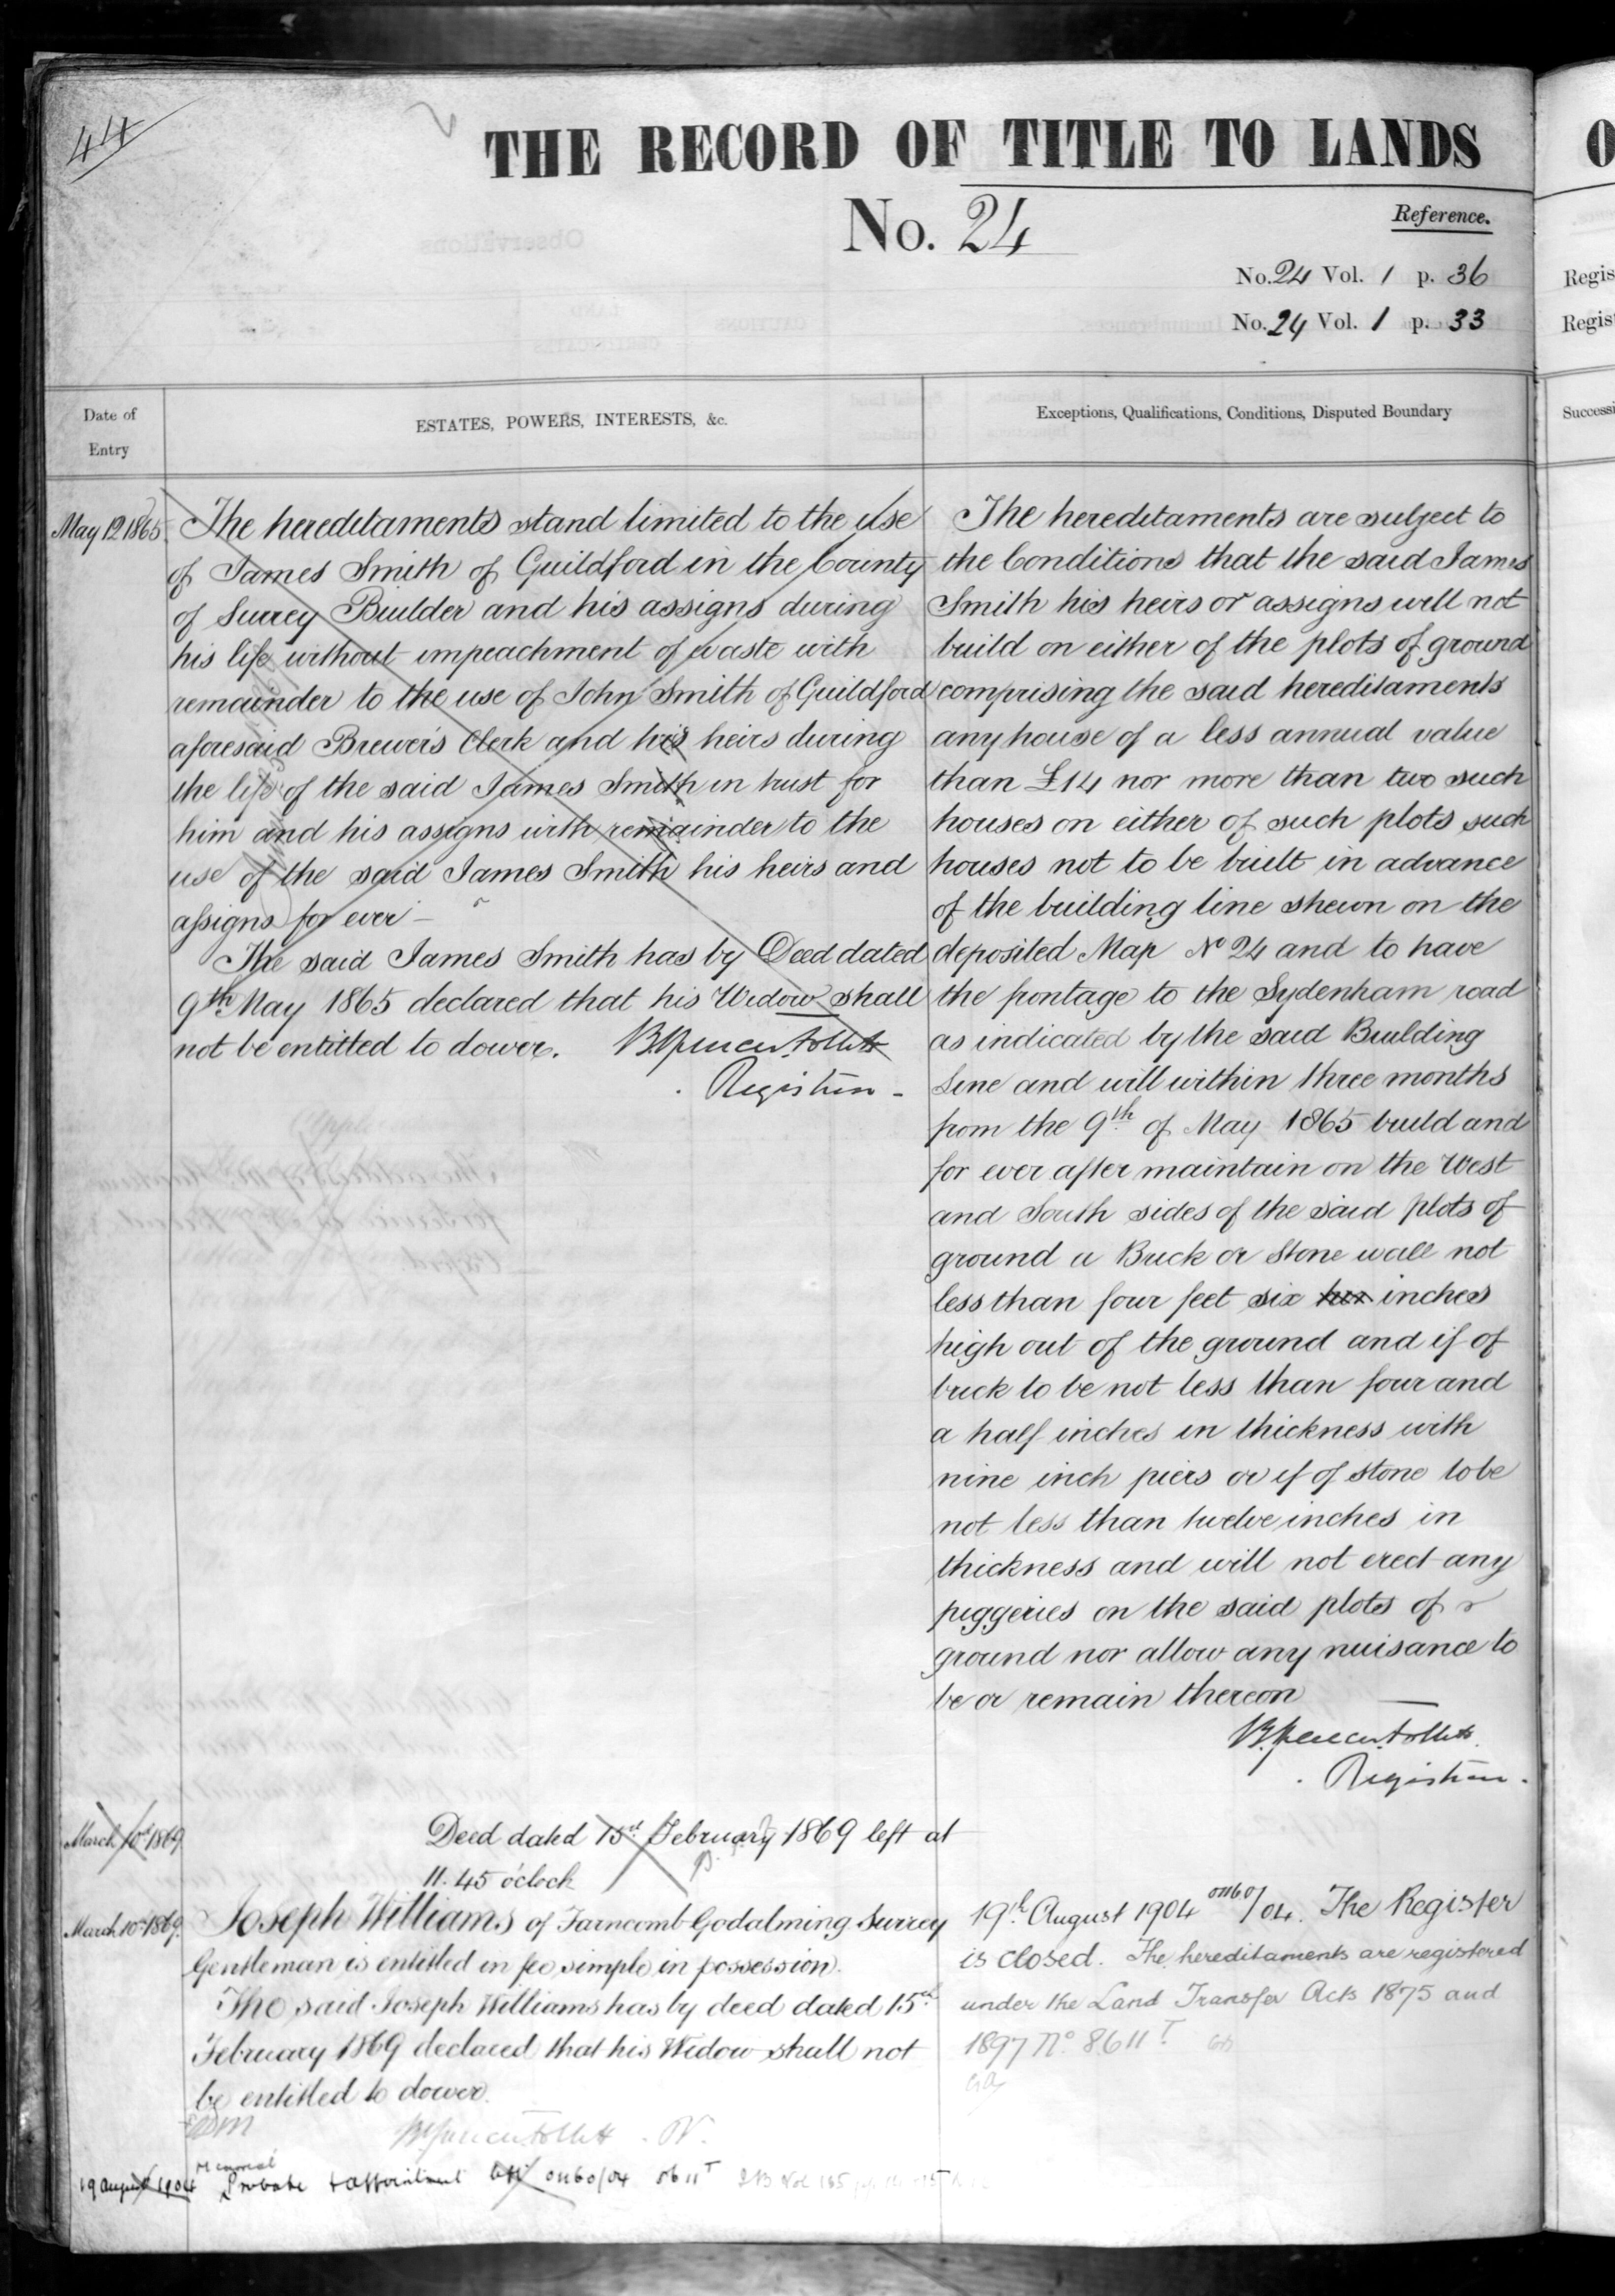 44
THE RECORD OF TITLE TO LANDS
No. 24
Reference.
No. 24 Vol. 1 p. 36
No. 24 Vol. 1 p. 33
Date of
Entry
ESTATES, POWERS, INTERESTS, &c.
Exceptions, Qualifications, Conditions, Disputed Boundary
May 12 1865.
The hereditaments stand limited to the use
of James Smith of Guildford in the County
of Surrey Builder and his assigns during
his life without impeachment of waste with
remainder to the use of John Smith of Guildford
aforesaid Brewer's Clerk and his heirs during
the life of the said James Smith in trust for
him and his assigns with remainder to the
use of the said James Smith his heirs and
assigns for ever —
The said James Smith has by Deed dated
9th May 1865 declared that his Widow shall
not be entitled to dower.
Registrar
The hereditaments are subject to
the Conditions that the said James
Smith his heirs or assigns will not
build on either of the plots of ground
comprising the said hereditaments
any house of a less annual value
than £14 nor more than two such
houses on either of such plots such
houses not to be built in advance
of the building line shewn on the
deposited Map No 24 and to have
the frontage to the Sydenham road
as indicated by the said Building
Line and will within three months
from the 9th of May 1865 build and
for ever after maintain on the West
and South sides of the said plots of
ground a Brick or Stone wall not
less than four feet six inches
high out of the ground and if of
brick to be not less than four and
a half inches in thickness with
nine inch piers or if of stone to be
not less than twelve inches in
thickness and will not erect any
piggeries on the said plots of
ground nor allow any nuisance to
be or remain thereon
Registrar
March 10th 1869
Deed dated 15th February 1869 left at
11.45 o'clock
March 10th 1869.
Joseph Williams of Farncomb Godalming Surrey
Gentleman is entitled in fee simple in possession.
The said Joseph Williams has by deed dated 15th
February 1869 declared that his Widow shall not
be entitled to dower.
19th August 1904 01160/04. The Register
is closed. The hereditaments are registered
under the Land Transfer Acts 1875 and
1897 No. 8611 T
19 August 1904
Memorial
Probate & appointment 01160/04 8611 T
O
Regis
Regist
Successi